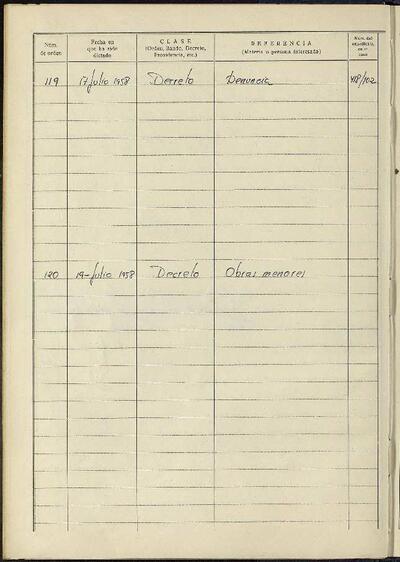 Núm. de orden
Fecha en que ha sido dictado
CLASE
(Orden, Bando, Decreto, Providencia, etc.)
REFERENCIA
(Materia o persona interesada)
Núm. del expediente, en su caso
119 17 Julio 1958 Decreto Denuncia 418/102
120 19-Julio 1958 Decreto Obras menores